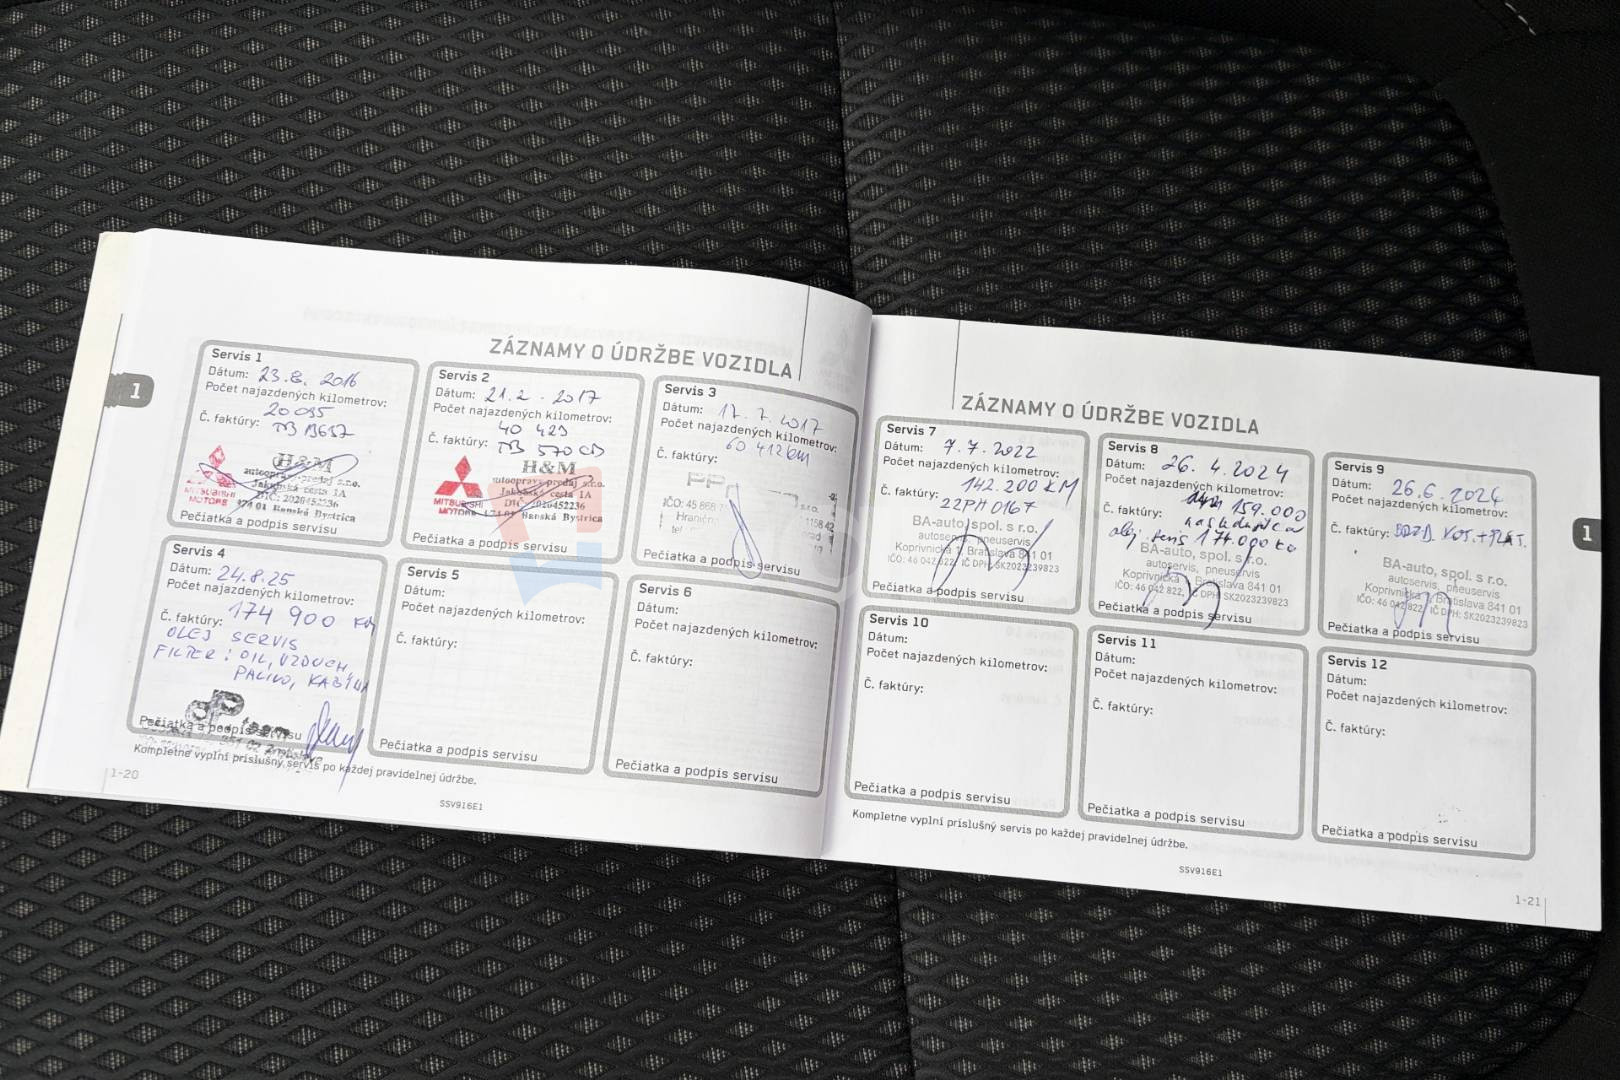 ZÁZNAMY O ÚDRŽBE VOZIDLA
1
Servis 1
Dátum: 23.8. 2016
Počet najazdených kilometrov:
20 095
Č. faktúry:
H&M
autoopravy-predaj s.r.o.
Jakubská cesta 1A
DIČ: 2020452236
974 01 Banská Bystrica
MITSUBISHI
MOTORS
Pečiatka a podpis servisu
Servis 2
Dátum: 21.2. 2017
Počet najazdených kilometrov:
40 423
Č. faktúry: TB 570CD
H&M
autoopravy-predaj s.r.o.
Jakubská cesta 1A
DIČ 2020452236
974 01 Banská Bystrica
MITSUBISHI
MOTORS
Pečiatka a podpis servisu
Servis 3
Dátum: 17.7.2017
Počet najazdených kilometrov:
60 412 km
Č. faktúry:
PP
s.r.o.
IČO: 45 868
Hraničn
tel
Pečiatka a podpis servisu
Servis 4
Dátum: 24.8.25
Počet najazdených kilometrov:
174 900 KM
Č. faktúry:
OLEJ SERVIS
FILTER: OIL, VZDUCH,
PALIVO, KABÍNA
team
Pečiatka a podpis servisu
Servis 5
Dátum:
Počet najazdených kilometrov:
Č. faktúry:
Pečiatka a podpis servisu
Servis 6
Dátum:
Počet najazdených kilometrov:
Č. faktúry:
Pečiatka a podpis servisu
Kompletne vyplní príslušný servis po každej pravidelnej údržbe.
1-20
SSV916E1
ZÁZNAMY O ÚDRŽBE VOZIDLA
1
Servis 7
Dátum: 7.7.2022
Počet najazdených kilometrov:
142.200 KM
Č. faktúry: 22PH0167
BA-auto, spol. s r.o.
autoservis, pneuservis
Koprivnická 1, Bratislava 841 01
IČO: 46 042 822, IČ DPH: SK2023239823
Pečiatka a podpis servisu
Servis 8
Dátum: 26.4.2024
Počet najazdených kilometrov:
159.000
Č. faktúry:
olej. servis 174.000 km
BA-auto, spol. s r.o.
autoservis, pneuservis
Koprivnická 1, Bratislava 841 01
IČO: 46 042 822, IČ DPH: SK2023239823
Pečiatka a podpis servisu
Servis 9
Dátum: 26.6.2024
Počet najazdených kilometrov:
Č. faktúry:
BA-auto, spol. s r.o.
autoservis, pneuservis
Koprivnická 1, Bratislava 841 01
IČO: 46 042 822, IČ DPH: SK2023239823
Pečiatka a podpis servisu
Servis 10
Dátum:
Počet najazdených kilometrov:
Č. faktúry:
Pečiatka a podpis servisu
Servis 11
Dátum:
Počet najazdených kilometrov:
Č. faktúry:
Pečiatka a podpis servisu
Servis 12
Dátum:
Počet najazdených kilometrov:
Č. faktúry:
Pečiatka a podpis servisu
Kompletne vyplní príslušný servis po každej pravidelnej údržbe.
SSV916E1
1-21